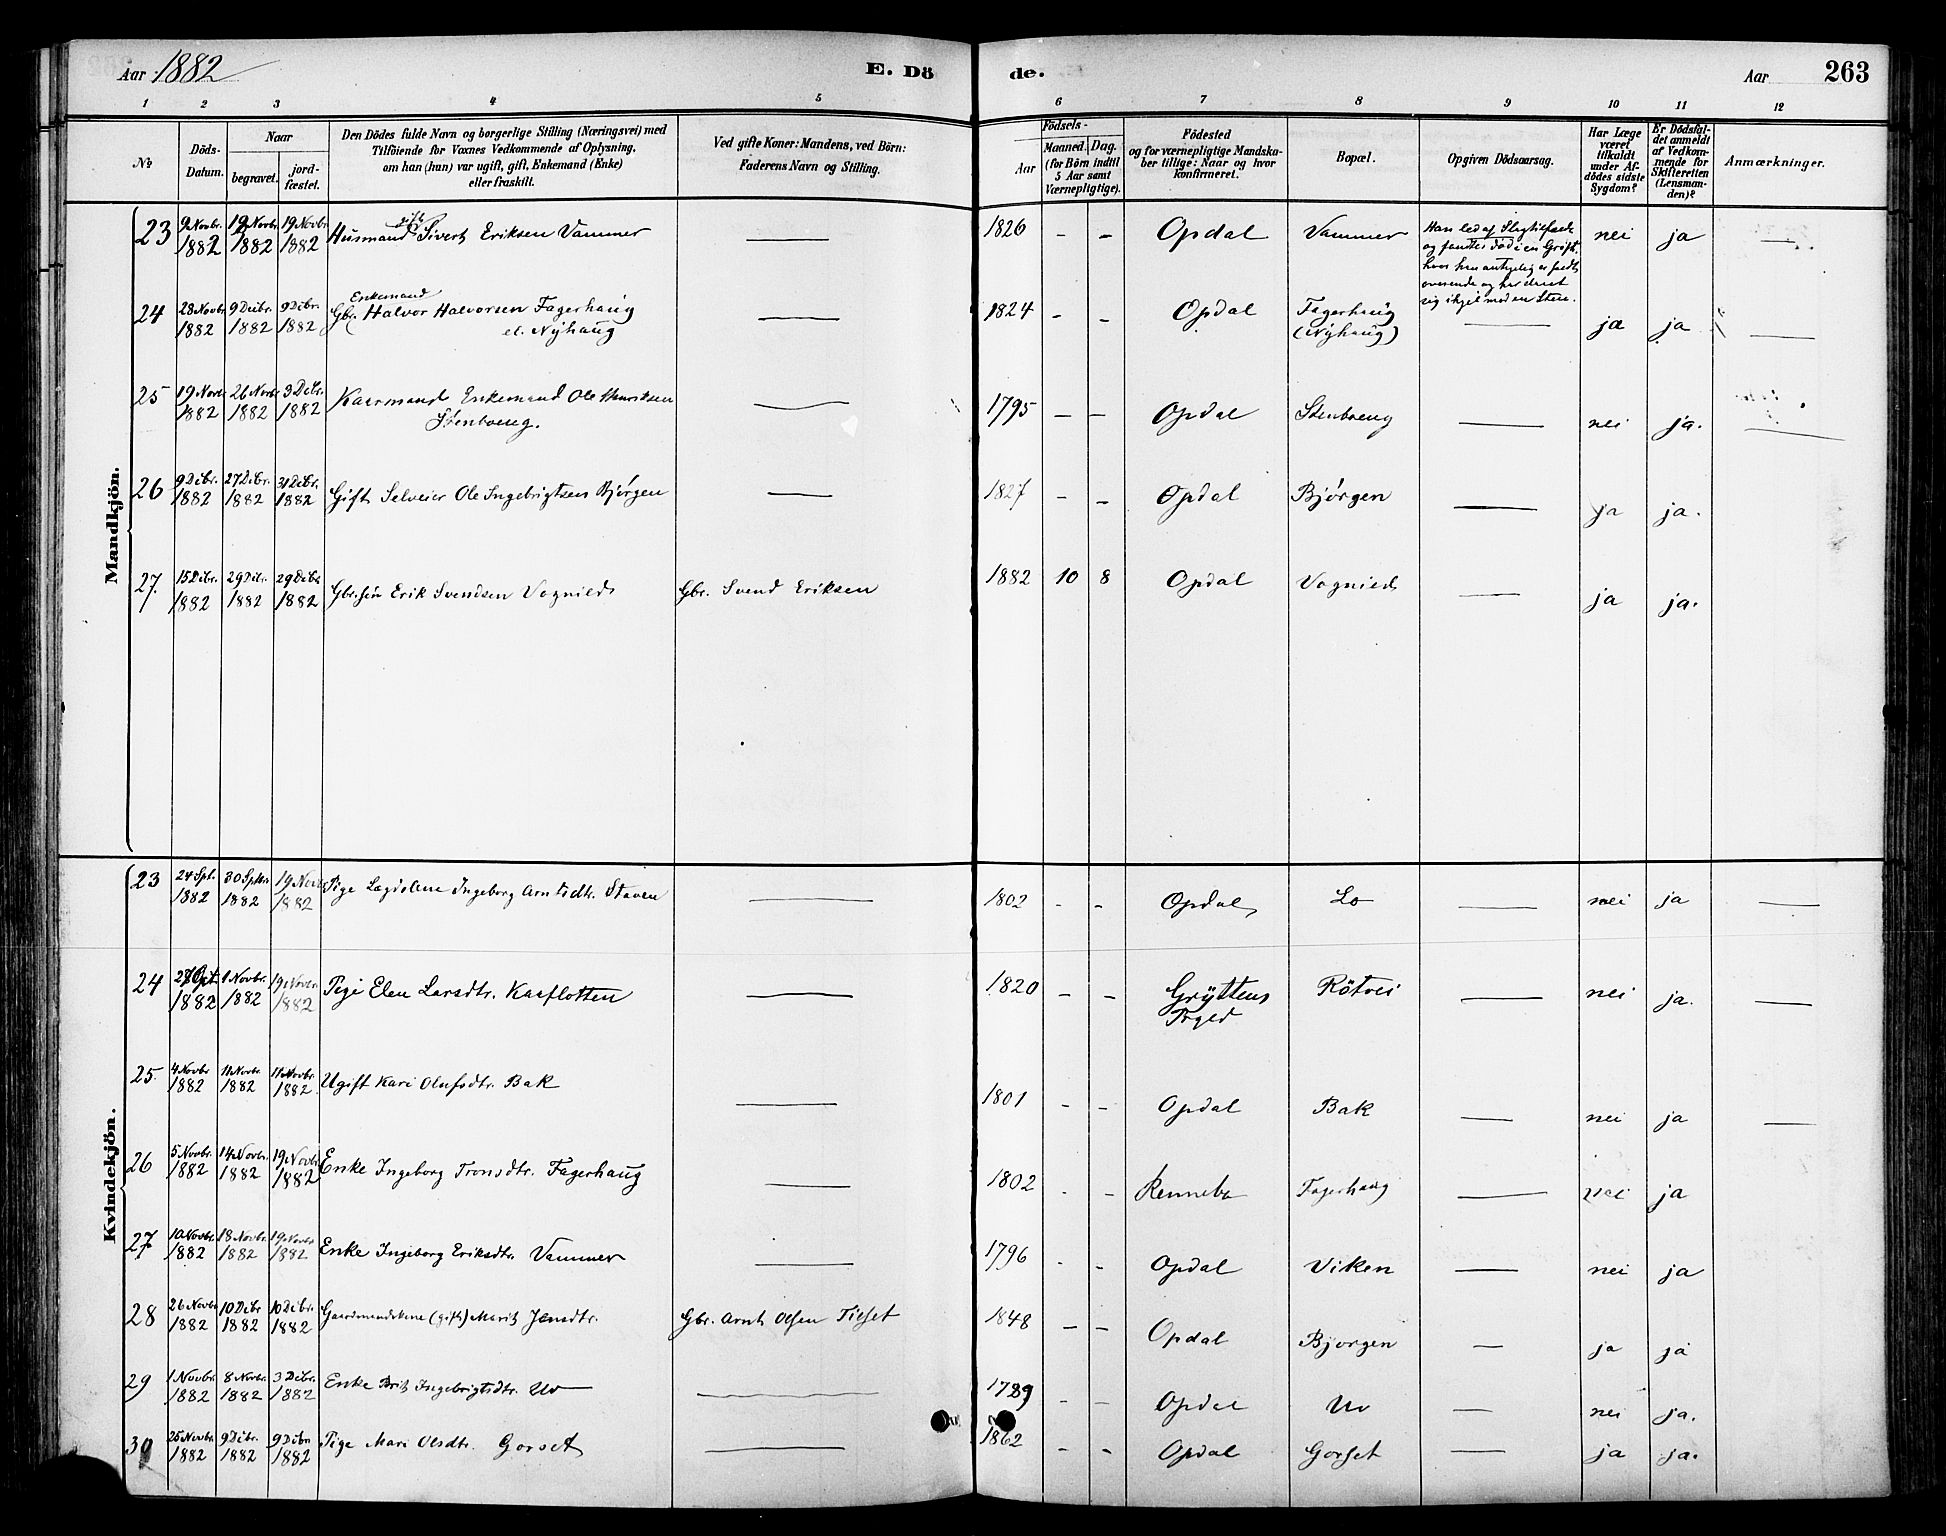 Aar: 1882 E. Dö de. Aar 263
1 2 3 4 5 6 7 8 9 10 11 12
No
Döds-
Datum.
Naar
begravet.
jord-
fæstet.
Den Dödes fulde Navn og borgerlige Stilling (Næringsvei) med
Tilföiende for Voxnes Vedkommende af Oplysning,
om han (hun) var ugift, gift, Enkemand (Enke)
eller fraskilt.
Ved gifte Koner: Mandens, ved Börn:
Faderens Navn og Stilling.
Födsels-
Aar
Maaned. Dag.
(for Börn indtil
5 Aar samt
Værnepligtige).
Födested
og for værnepligtige Mandska-
ber tillige: Naar og hvor
konfirmeret.
Bopæl.
Opgiven Dödsaarsag.
Har Læge
været
tilkaldt
under Af-
dödes sidste
Sygdom?
Er Dödsfal-
det anmeldt
af Vedkom-
mende for
Skifteretten
(Lensman-
den)?
Anmærkninger.
Mandkjön.
23 9 Novbr. 1882 19 Novbr 1882 19 Novbr 1882 Husmand gift Sivert Eriksen Vammer — 1826 - - Opdal Vammer nei ja —
Han led af Slagtilfælde
og fandtes død i en Grøft,
hvor han antagelig er faldt
overende og har
sig ihjel mod en Sten.
24 28 Novbr 1882 9 Debr. 1882 9 Debr. 1882 Enkemand
Gbr. Halvor Halvorsen Fagerhaug
el. Nÿhaug — 1824 - - Opdal Fagerhaug
(Nÿhaug) — ja ja —
25 19 Novbr 1882 26 Novbr 1882 3 Debr. 1882 Kaarmand Enkemand Ole Henriksen
Stenboeng. — 1795 - - Opdal Stenboeng — nei ja. —
26 9 Debr. 1882 27 Debr. 1882 31 Debr. 1882 Gift Selveier Ole Ingebrigtsen Bjørgen — 1827 - - Opdal Bjørgen — ja ja.
27. 15 Debr. 1882 29 Debr. 1882 29 Debr 1882 Gbr. søn Erik Svendsen Vognild Gbr. Svend Eriksen 1882 10 8 Opdal Vognild — ja ja.
Kvindekjön.
23 24 Spt. 1882 30 Sptbr. 1882 19 Novbr 1882 Pige Lægdslem Ingeborg Arntsdtr. Staven — 1802 - - Opdal Lo — nei ja —
24 1882 1 Novbr. 1882 19 Novbr 1882 Pige Elen Larsdtr. Kasflotten — 1820 - - Grÿttens
Prgjld Rötvei — nei ja. —
25. 4 Novbr 1882 11 Novbr. 1882 11 Novbr. 1882 Ugift Kari Olufsdtr. Bak — 1801 - - Opdal Bak — nei ja —
26 5 Novbr. 1882 14 Novbr. 1882 19 Novbr 1882 Enke Ingeborg Tronsdtr. Fagerhaug — 1802 - - Rennebo Fagerhaug — nei ja
27 10 Novbr. 1882 18 Novbr. 1882 19 Novbr 1882 Enke Ingeborg Eriksdtr. Vammer — 1796 - - Opdal Viken — nei ja
28 26 Novbr 1882 10 Debr 1882 10 Debr. 1882 Gaardmandskone (gift) Marit Jensdtr. Gbr. Arnt Olsen Tieset 1848 - - Opdal Bjørgen — ja ja
29 1 Novbr. 1882 8 Novbr. 1882 3 Debr. 1882 Enke Brit Ingebrigtsdtr. Uv — 1789 - - Opdal Uv — nei ja.
30 25 Novbr. 1882 9 Debr. 1882 9 Debr 1882 Pige Mari Olsdtr. Gorset — 1862 - - Opdal Gorset — ja ja.